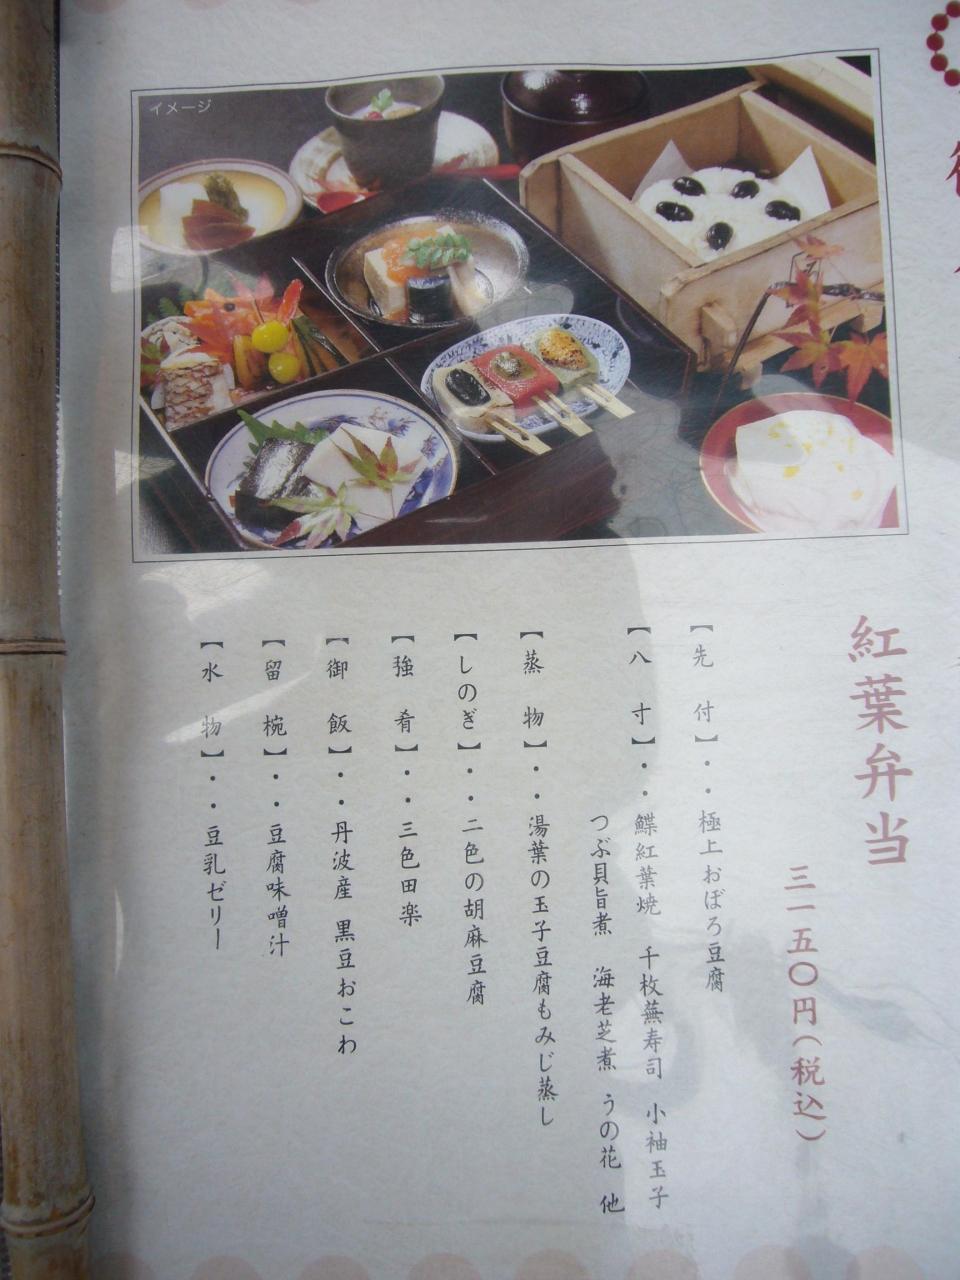 イメージ
紅葉弁当
三一五〇円（税込）
【先付】・・極上おぼろ豆腐
【八寸】・・鰈紅葉焼　千枚蕪寿司　小袖玉子
つぶ貝旨煮　海老芝煮　うの花　他
【蒸物】・・湯葉の玉子豆腐もみじ蒸し
【しのぎ】・・二色の胡麻豆腐
【強肴】・・三色田楽
【御飯】・・丹波産　黒豆おこわ
【留椀】・・豆腐味噌汁
【水物】・・豆乳ゼリー